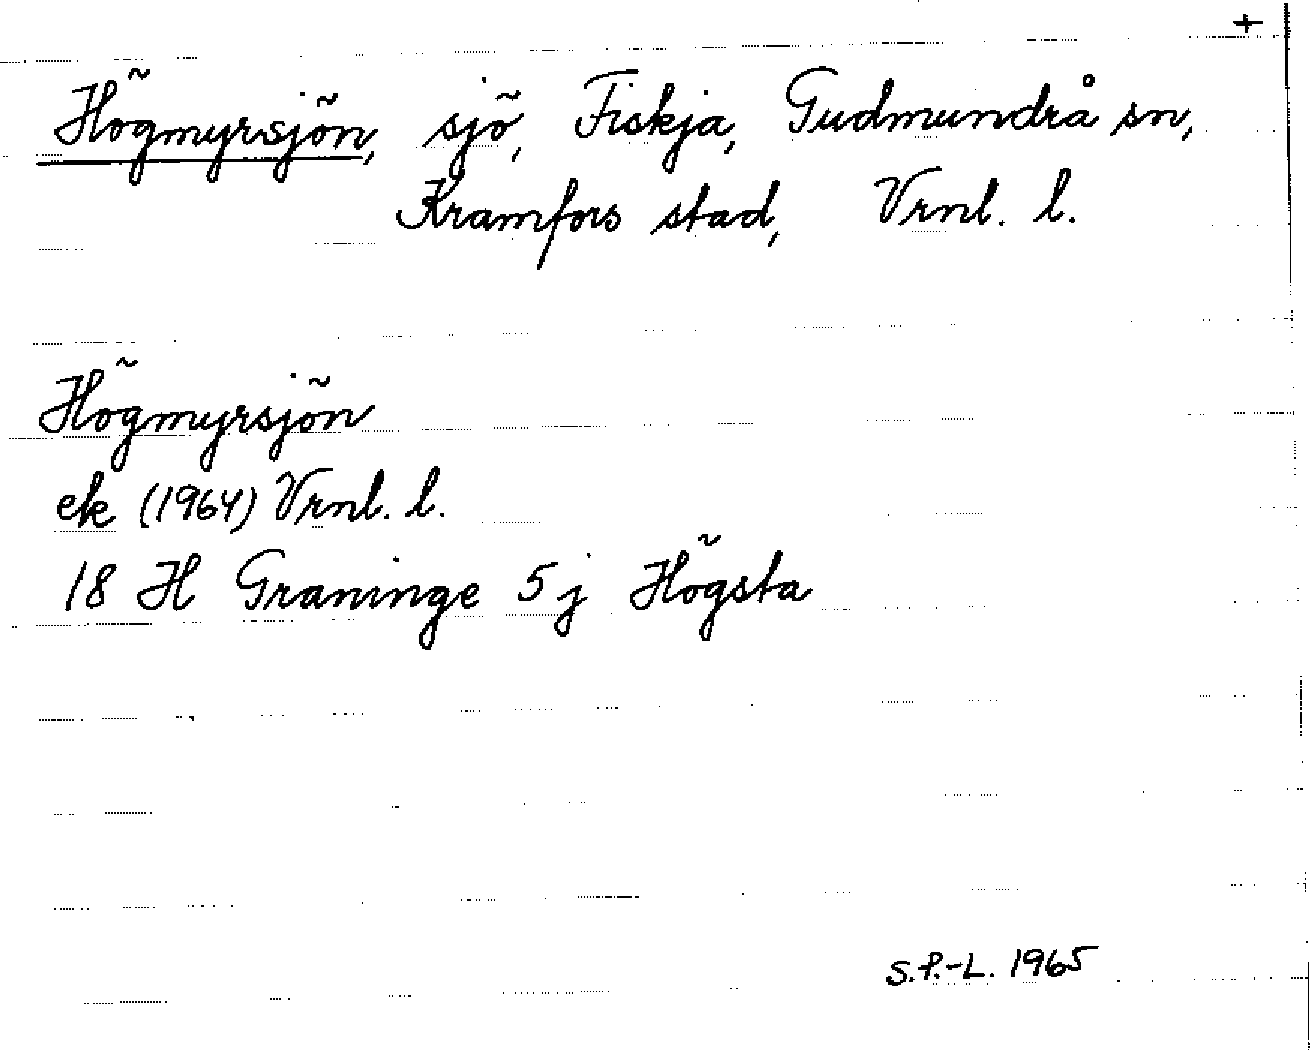 +
Högmyrsjön, sjö, Fiskja, Gudmundrå sn,
Kramfors stad, Vrnl. l.
Högmyrsjön
ek (1964) Vrnl. l.
18 H Graninge 5 j Högsta
S.P.-L. 1965